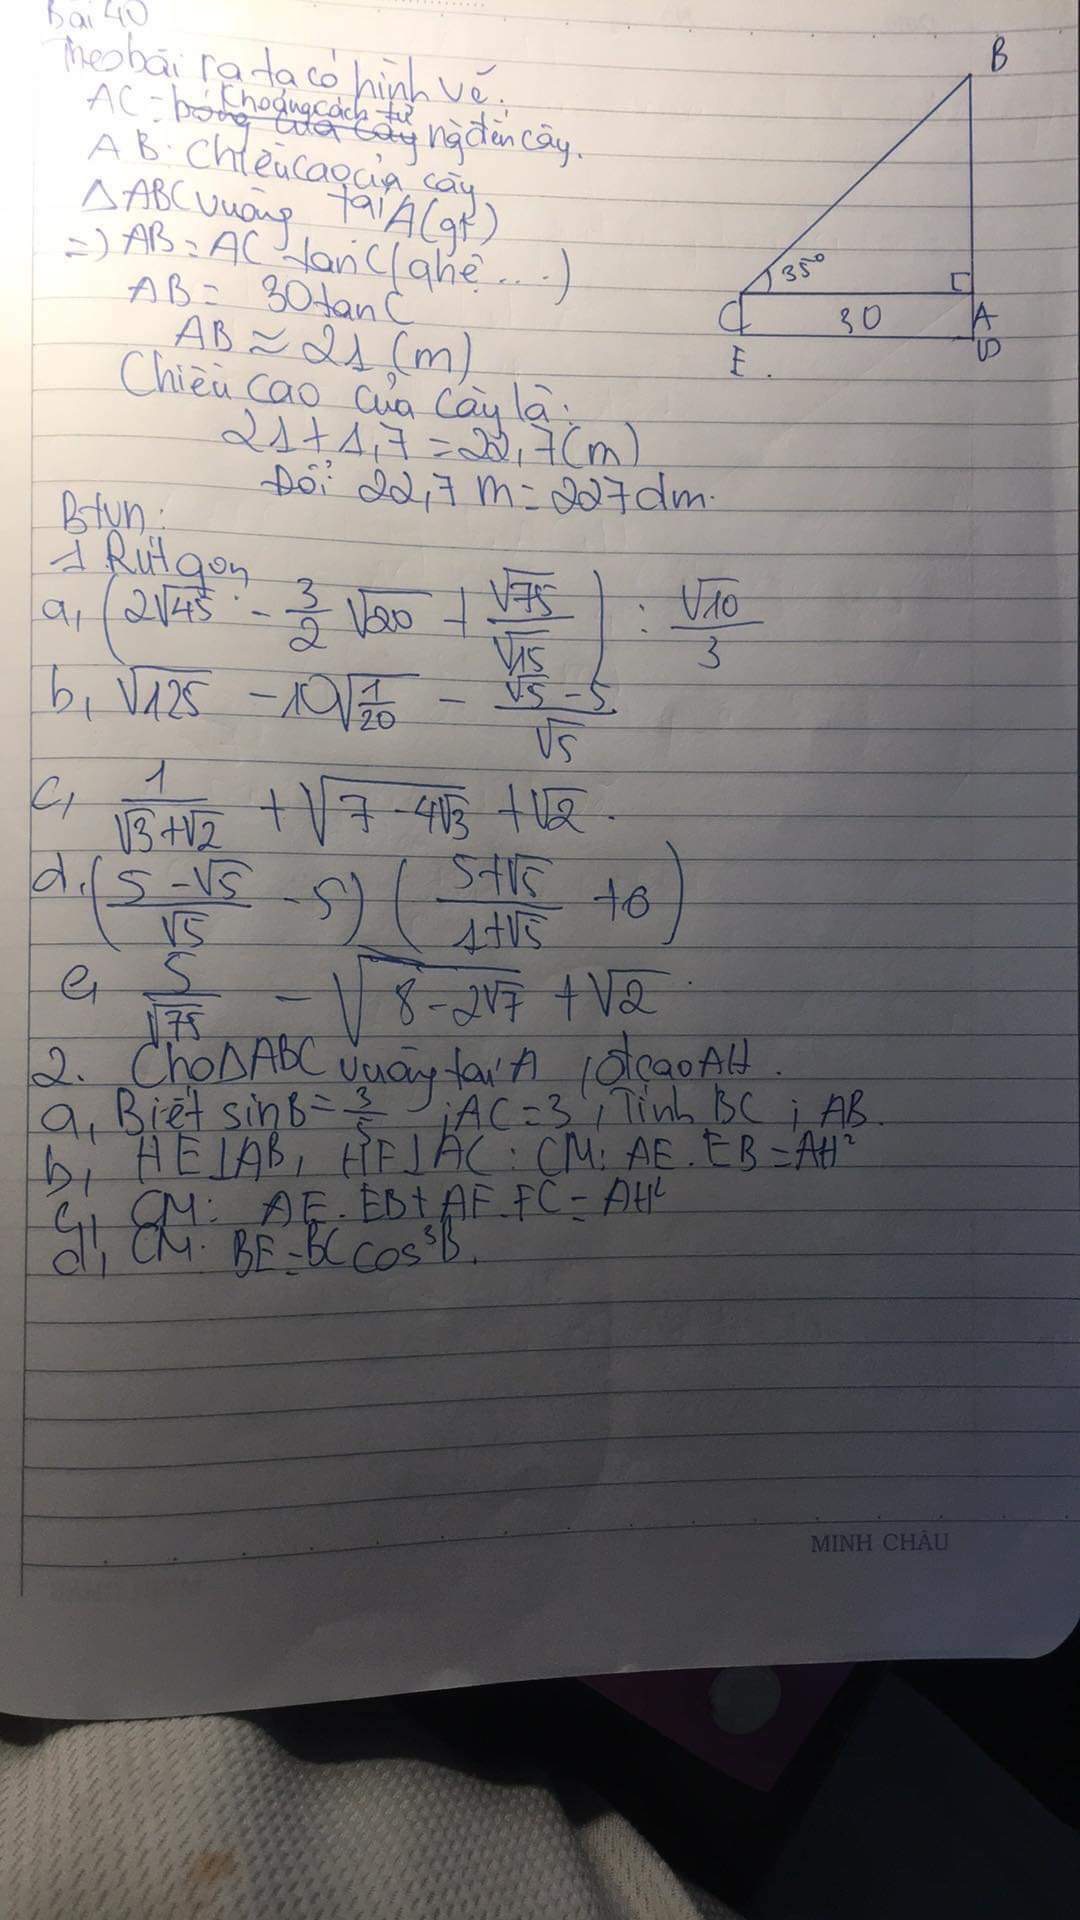 Bài 40
Theo bài ra ta có hình vẽ.
AC = khoảng cách từ ng đến cây.
AB: Chiều cao của cây
△ABC vuông tại A (gt)
=> AB = AC tanC (q hệ ....)
AB = 30 tanC
AB ≈ 21 (m)
Chiều cao của cây là:
21 + 1,7 = 22,7 (m)
Đổi 22,7 m = 227 dm.
B
35°
C
30
A
E
D
Btvn:
1 Rút gọn
a, (2√45 - 3/2 √20 + √75/√15) : √10/3
b, √125 - 10√(1/20) - (√5 - 5)/√5
c, 1/(√3+√2) + √(7 - 4√3) + √2.
d. ((5 - √5)/√5 - 5) ((5+√5)/(1+√5) + 6)
e, 5/√75 - √(8 - 2√7) + √2
2. Cho △ABC vuông tại A, đ cao AH.
a, Biết sinB = 3/5 ; AC = 3, Tính BC ; AB.
b, HE⊥AB, HF⊥AC : CM: AE.EB = AH²
c, CM: AE.EB + AF.FC = AH²
d, CM: BE = BC cos³B.
MINH CHÂU